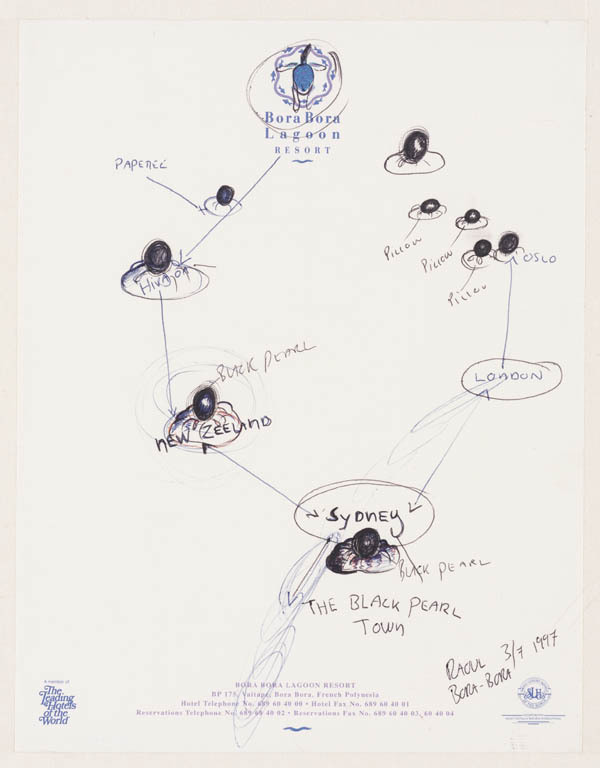 Bora Bora
Lagoon
RESORT
PAPEREC
PILLOW
PILLOW
PILLOW
OSLO
BLACK PEARL
LONDON
NEW ZEELAND
SYDNEY
BLACK PEARL
THE BLACK PEARL
TOWN
RAOUL 3/7 1997
BORA-BORA
A member of
The
Leading
Hotels
of the
World
BORA BORA LAGOON RESORT
BP 175, Vaitape, Bora Bora, French Polynesia
Hotel Telephone No. 689 60 40 00 • Hotel Fax No. 689 60 40 01
Reservations Telephone No. 689 60 40 02 • Reservations Fax No. 689 60 40 03, 60 40 04